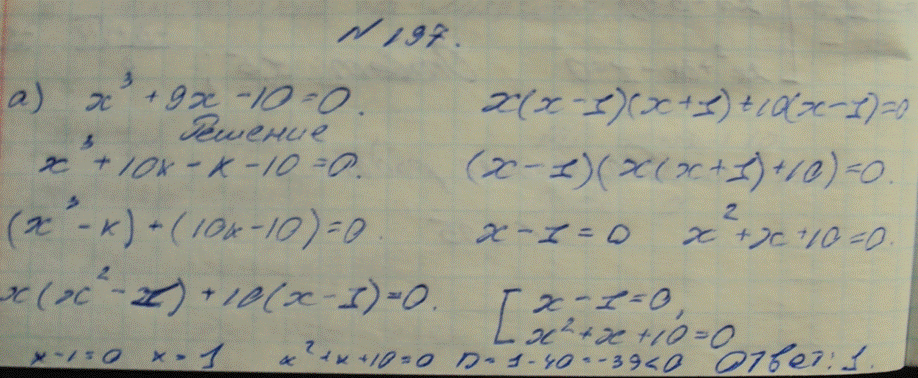 N 197.
а) x³ + 9x - 10 = 0.
Решение
x³ + 10x - x - 10 = 0.
(x³ - x) + (10x - 10) = 0.
x(x² - 1) + 10(x - 1) = 0.
x(x - 1)(x + 1) + 10(x - 1) = 0
(x - 1)(x(x + 1) + 10) = 0.
x - 1 = 0 x² + x + 10 = 0.
[ x - 1 = 0,
x² + x + 10 = 0
x - 1 = 0 x = 1 x² + x + 10 = 0 D = 1 - 40 = -39 < 0 Ответ: 1.